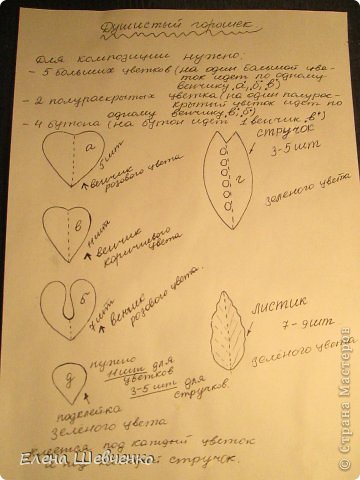 Душистый горошек
Для композиции нужно:
- 5 больших цветков (на один большой цве-
ток идет по одному
венчику „а", б", в")
- 2 полураскрытых цветка (на один полурас-
крытый цветок идет по
одному венчику „в", б")
- 4 бутона (на бутон идет 1 венчик „в"
а
5 шт
венчик
розового цвета
стручок
3-5 шт
г
зеленого цвета
в
11 шт
венчик
коричневого
цвета
б
7 шт
венчик
розового цвета.
листик
7-9 шт
зелёного цвета
д
нужно
11 шт для
цветков
3-5 шт для
стручков
подклейка
зеленого цвета
клеется под каждый цветок
и под каждый стручок.
Елена Шевченко
© Страна Мастеров